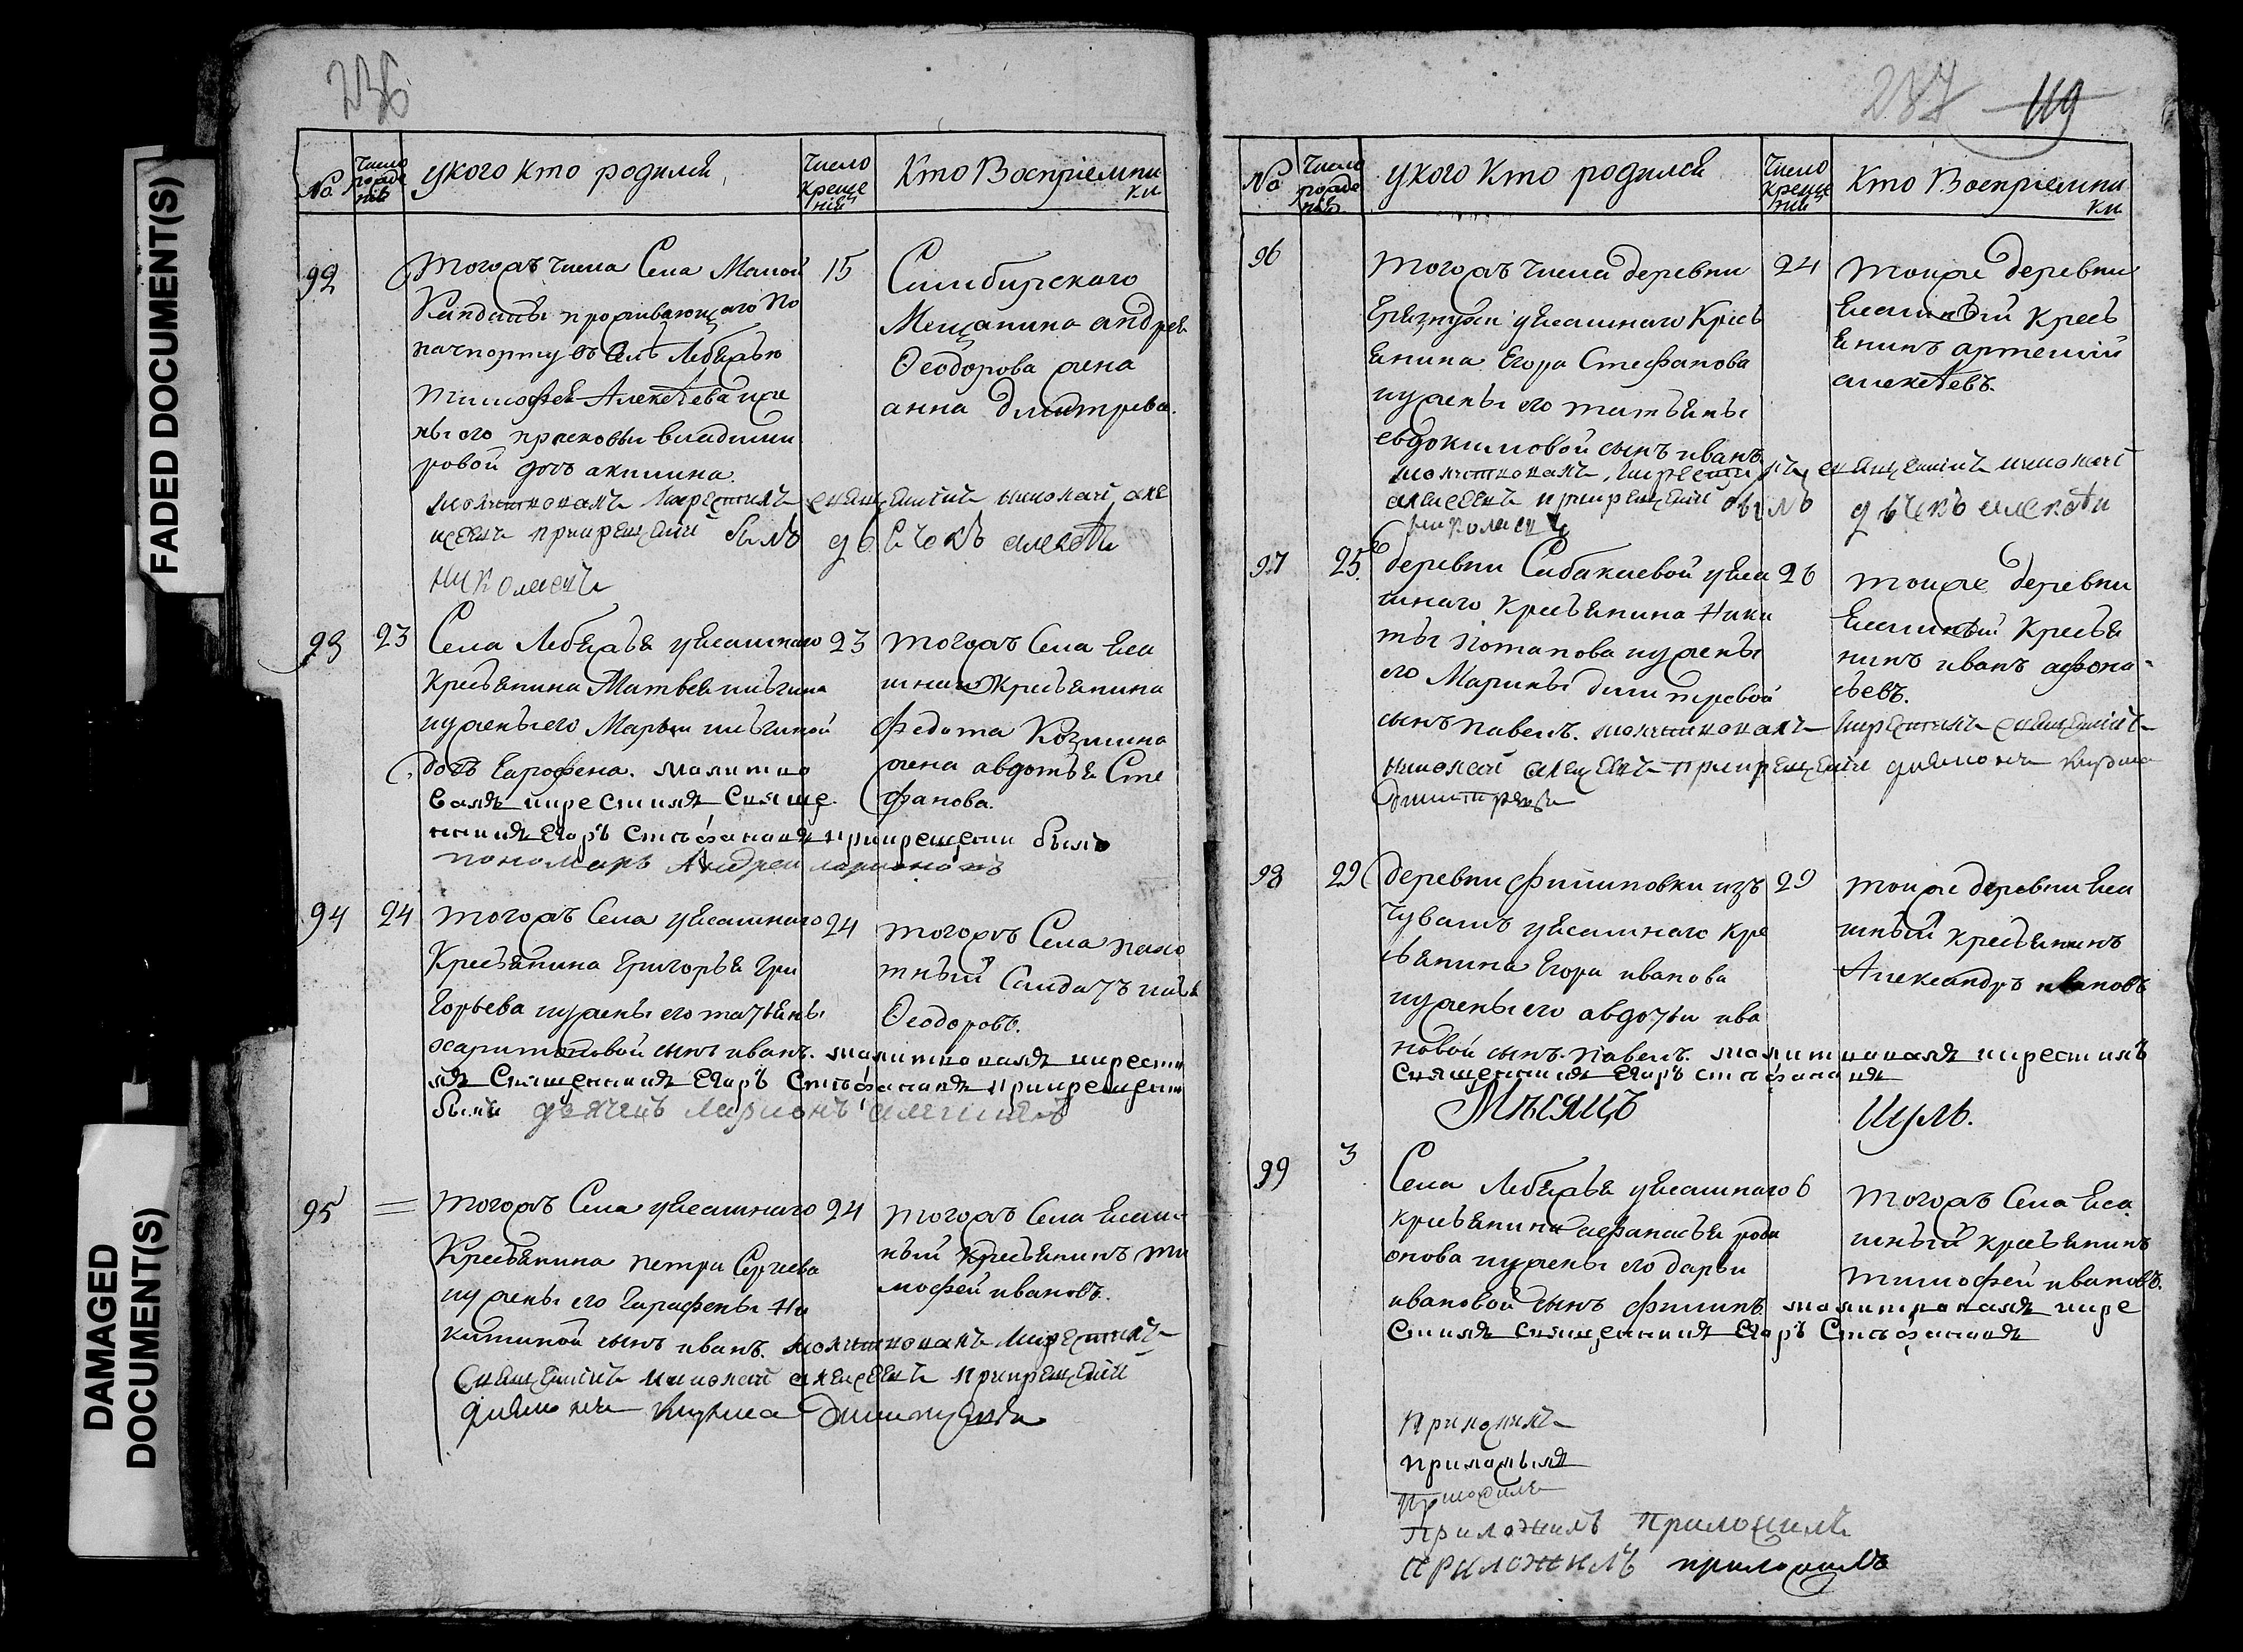 FADED DOCUMENT(S)
DAMAGED
DOCUMENT(S)
236
No
Число
рожде
нія
у кого кто родился
Число
Креще
нія
Кто Воспріемни
ки
92
тогожъ числа Села Малой
Кандалы проживающаго по
пачпорту въ Селѣ Лебяжье
тимофея Алексѣева и же
ны его прасковьи владими
ровой дочь акилина.
молитвовалъ и крестилъ священникъ николай але
ксеевъ при крещеніи былъ дьячекъ алексѣй
николаевъ
15
Симбирскаго
Мещанина андрея
Ѳеодорова жена
анна дмитрева.
93
23
Села Лебяжья удѣльнаго
Крестьянина Матвея ильина
и жены его Марьи ильиной
дочь Гарофена. молитво
валъ и крестилъ Свяще
нникъ Егоръ Стефановъ при крещении былъ
пономарь Андрей ларионовъ
23
тогожъ Села уде
льнаго Крестьянина
федота Козмина
жена авдотья Сте
фанова.
94
24
тогожъ Села удѣльнаго
Крестьянина Григорья Гри
горьева и жены его татьяны
харитоновой сынъ иванъ. молитвовалъ и крести
лъ Священникъ Егоръ Стефановъ при крещении
былъ дьячекъ Ларионъ алексиевъ
24
тогожъ Села
Солдатъ илья
Ѳеодоровъ.
95
=
тогожъ Села удѣльнаго
Крестьянина петра Сергеева
и жены его Гарафены Ни
китиной сынъ иванъ. молитвовалъ и крестилъ
Священникъ николай алексеевъ при крещеніи
диаконъ кузма дмитриевъ
24
тогожъ Села удель
ный Крестьянинъ ти
мофей ивановъ.
237 119
No
Число
рожде
нія
у кого кто родился
Число
Креще
нія
Кто Воспріемни
ки
96
тогожъ числа деревни
Грязнухи удѣльнаго Кресть
янина Егора Стефанова
и жены его татьяны
евдокимовой сынъ иванъ.
молитвовалъ и крестилъ священникъ николай
алексеевъ при крещеніи былъ дьячекъ алексѣй
николаевъ
24
тойже деревни
удельный Кресть
янинъ артемий
алексѣевъ.
97
25
деревни Сабакаевой удѣль
наго Крестьянина Ники
ты Потапова и жены
его Марины димитревой
сынъ павелъ. молитвовалъ и крестилъ священникъ
николай алексеевъ при крещеніи диаконъ кузма
дмитревъ
26
тойже деревни
удельный Крестья
нинъ иванъ афона
сьевъ.
98
29
деревни филиповки изъ
Чувашъ удѣльнаго кре
стьянина Егора иванова
и жены его авдотьи ива
новой сынъ павелъ. молитвовалъ и крестилъ
Священникъ Егоръ стефановъ
29
тойже деревни уде
льный крестьянинъ
Александръ ивановъ
Мѣсяцъ Июль.
99
3
Села Лебяжья удѣльнаго
крестьянина афанасья роди
онова и жены его дарьи
ивановой сынъ филипъ. молитвовалъ и кре
стилъ священникъ Егоръ Стефановъ
6
тогожъ Села уде
льный крестьянинъ
тимофей ивановъ.
Приложилъ
приложилъ
приложилъ
Приложилъ приложилъ
приложилъ приложилъ